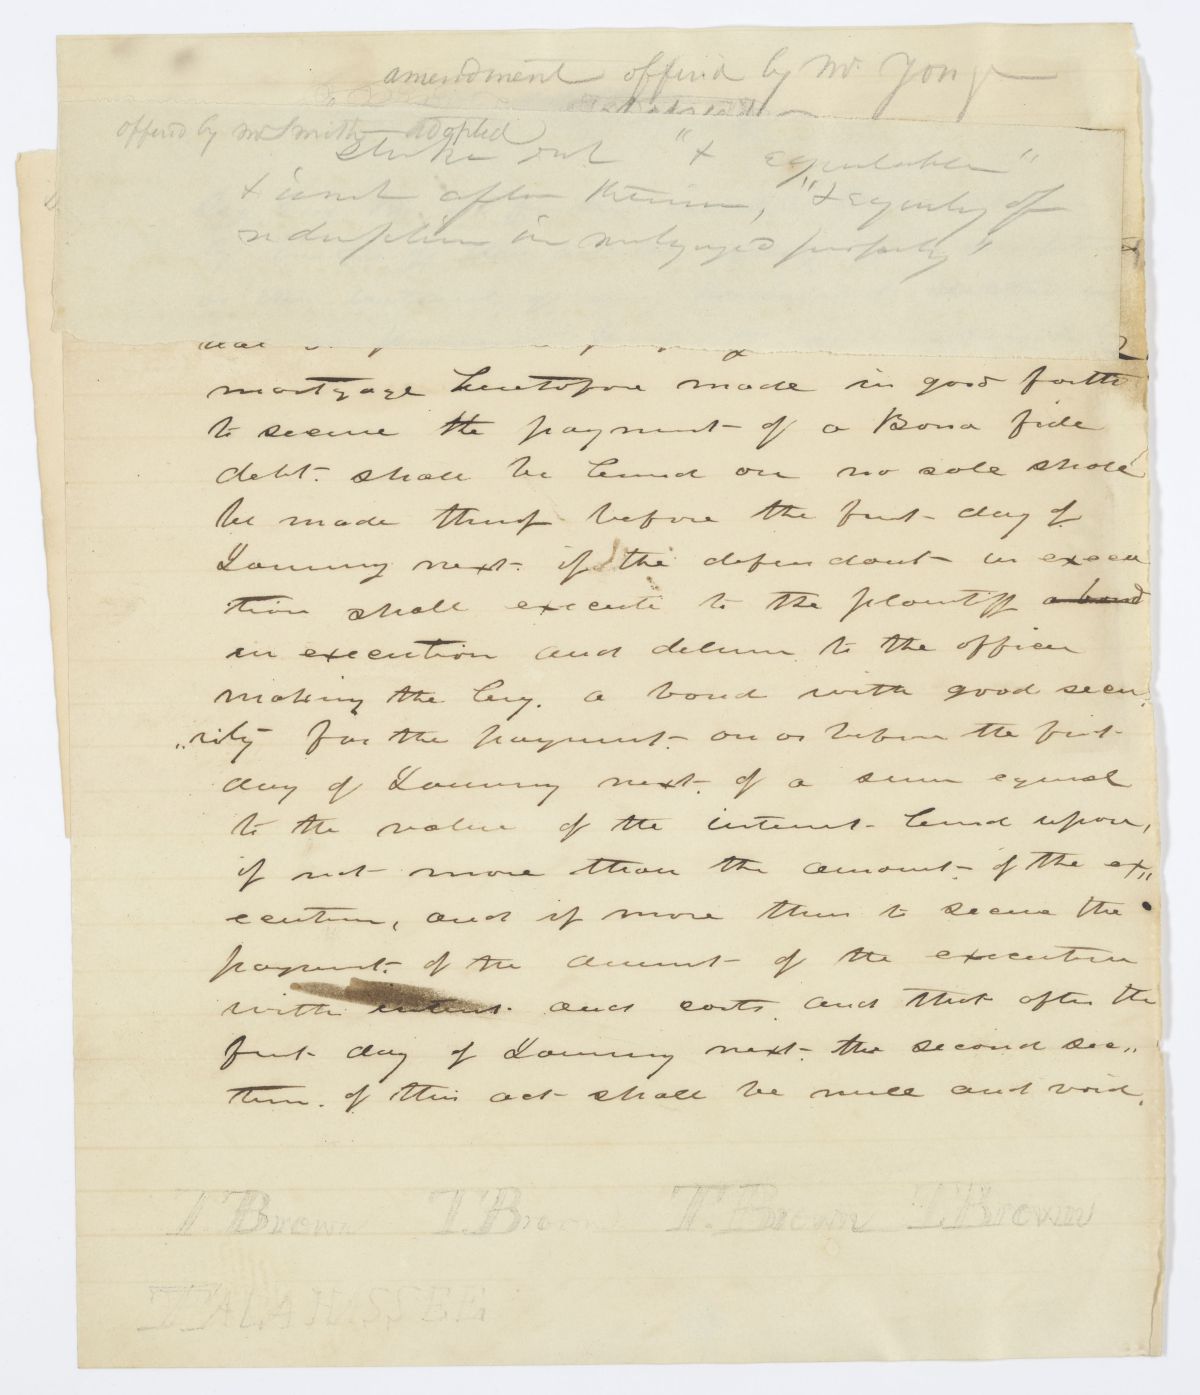 amendment offerid by Mr. Yonge
offerid by Mr Smith adopted
Strike out "& equitable"
& insert after therein, "& equity of
redemption in mortgaged property"
mortgage heretofore made in good faith
to secure the payment of a Bona fide
debt. shall be levied on no sale shall
be made thereof before the first day of
January next. if the defendant in execu
tion shall execute to the plaintiff a bond
in execution and deliver to the officer
making the levy. a bond with good secu
„rity for the payment on or before the first
day of January next. of a sum equal
to the value of the interest levied upon,
if not more than the amount of the ex„
ecution, and if more then to secure the
payment. of the amount of the execution
with interest and costs. and that after the
first day of January next. the second sec„
tion. of this act shall be null and void.
T. Brown T. Brown T. Brown T. Brown
TALAHASSEE